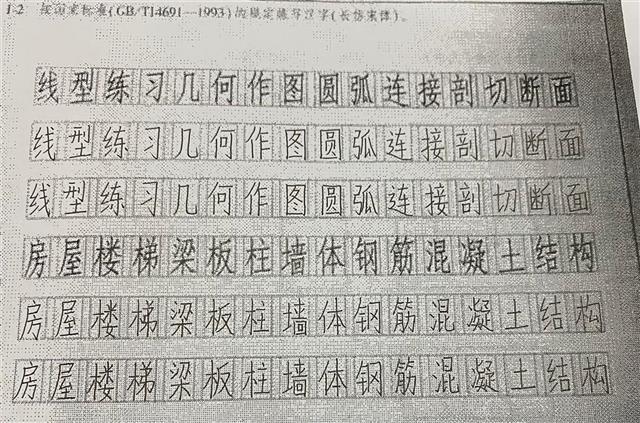 1-2 按国家标准(GB/T14691—1993)的规定练写汉字(长仿宋体)。
线型练习几何作图圆弧连接剖切断面
线型练习几何作图圆弧连接剖切断面
线型练习几何作图圆弧连接剖切断面
房屋楼梯梁板柱墙体钢筋混凝土结构
房屋楼梯梁板柱墙体钢筋混凝土结构
房屋楼梯梁板柱墙体钢筋混凝土结构